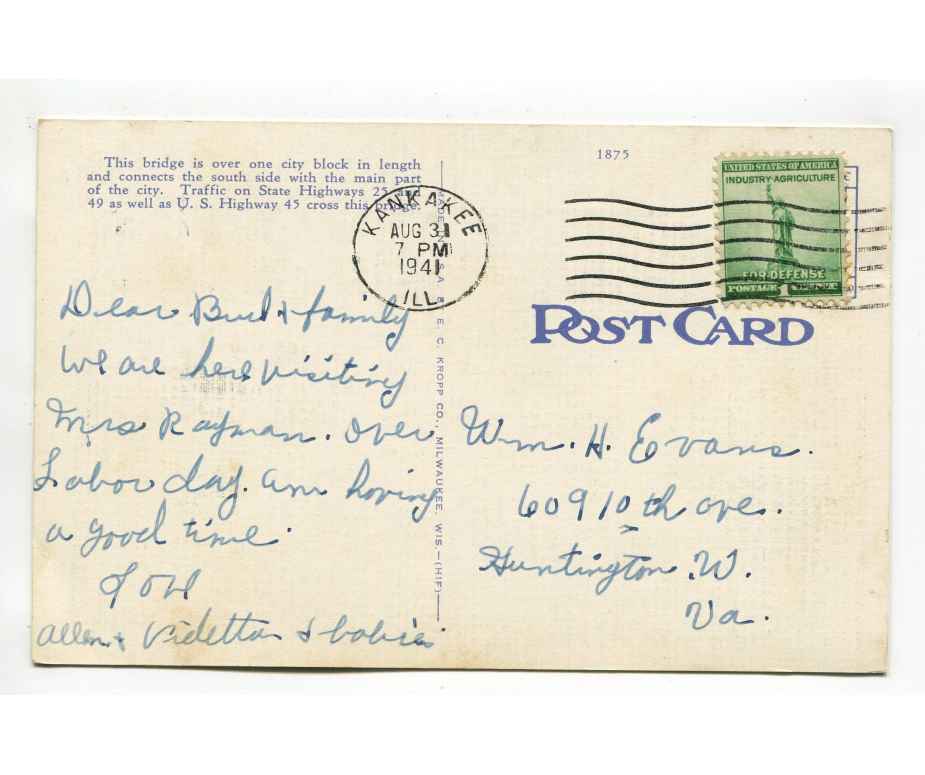 This bridge is over one city block in length
and connects the south side with the main part
of the city. Traffic on State Highways 25 and
49 as well as U. S. Highway 45 cross this bridge.
1875
KANKAKEE
AUG 31
7 PM
1941
ILL.
UNITED STATES OF AMERICA
INDUSTRY·AGRICULTURE
FOR DEFENSE
POSTAGE 1
POST CARD
E. C. KROPP CO., MILWAUKEE, WIS.—(HIF)
Dear Bud & family
We are here visiting
Mrs Rayman. over
Labor day. am having
a good time.
Allen & Videtta & babies
Wm. H. Evans.
609 10th ave.
Huntington W.
Va.